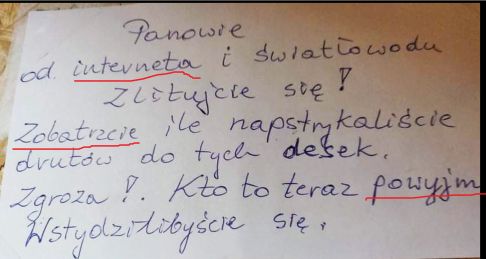 Panowie
od interneta i światłowodu
Zlitujcie się!
Zobatrzcie ile napstrykaliście
drutów do tych desek.
Zgroza!. Kto to teraz powyjm
Wstydzilibyście się.